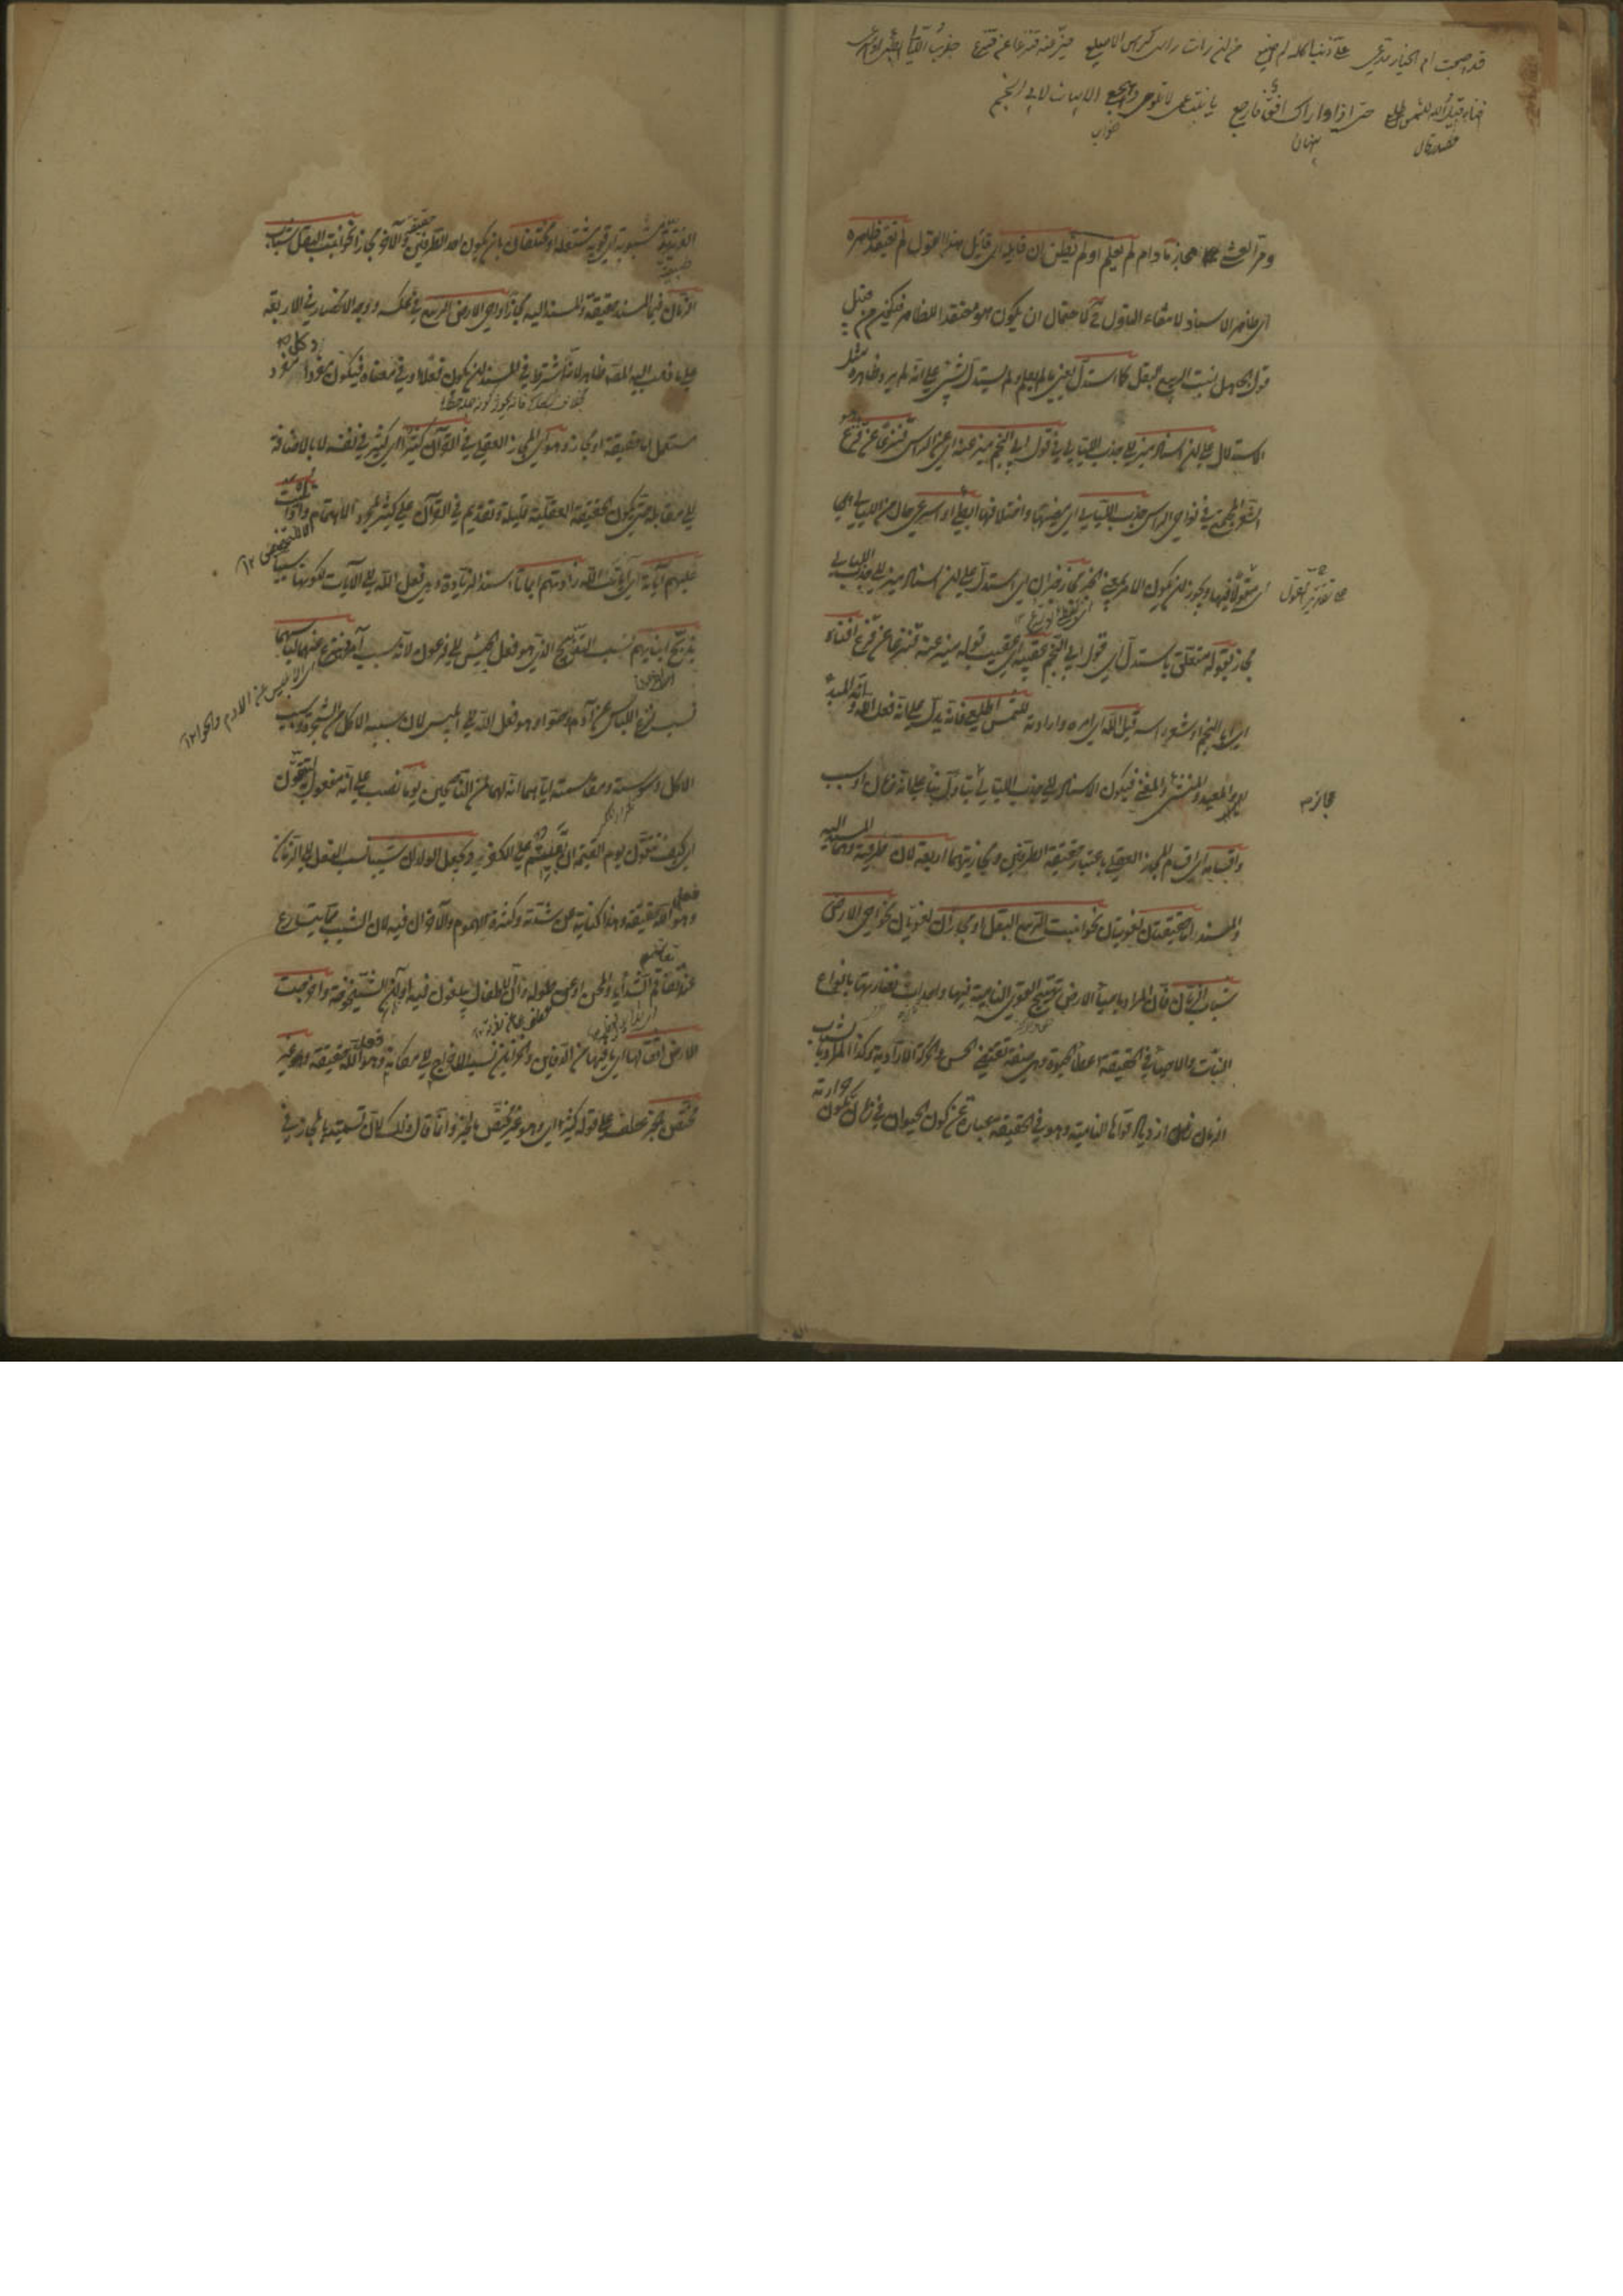 قد اصبحت ام الخيار تدعي علي ذنبا كله لم اصنع من ان رأت راسي كرأس الاصلع ميز عنه قنزعا عن قنزع جذب الليالي ابطئي او اسرعي
افناه قيل الله للشمس اطلعي حتى اذا واراك افق فارجعي يا بنت عمي لا تلومي واهجعي الابيات لابي النجم
ومر العشي مجاز ما دام لم يعلم او لم يظن ان قايله اي قائل هذا القول لم يعتقد ظاهره
اي ظاهر الاسناد لانتفاء التاول ح لاحتمال ان يكون هو معتقدا للظاهر فيكون من قبيل
قول الجاهل انبت الربيع البقل كما استدل يعني ما لم يعلم ولم يستدل بشيء على انه لم يرد ظاهره مثل
الاستدلال على ان اسناد ميز الى جذب الليالي في قول ابي النجم ميز عنه اي عن الراس قنزعا عن قنزع
الشعر المجتمع في نواحي الراس جذب الليالي اي مضيها واختلافها ابطئي او اسرعي حال من الليالي اي
على تقدير القول
اي مقولا فيها ويجوز ان يكون الامر بمعنى الخبر مجاز خبر ان اي استدل على ان اسناد ميز الى جذب الليالي
مجاز بقوله متعلق باستدل اي قول ابي النجم عقيبه اي عقيب قوله ميز عنه قنزعا عن قنزع افناه
اي ابا النجم او شعر راسه قيل الله اي امره وارادته للشمس اطلعي فانه يدل على انه فعل الله وانه المبدئ
والمعيد والمنشئ والمفني فيكون الاسناد الى جذب الليالي بتاول بناء على انه زمان او سبب
مجاز
واقسامه اي اقسام المجاز العقلي باعتبار حقيقة الطرفين ومجازيتهما اربعة لان طرفيه وهما المسند اليه
والمسند اما حقيقتان لغويتان نحو انبت الربيع البقل او مجازان لغويان نحو احيى الارض
شباب الزمان فان المراد باحياء الارض تهييج القوى النامية فيها واحداث نضارتها بانواع
النبات والاحياء في الحقيقة اعطاء الحيوة وهي صفة تقتضي الحس والحركة الارادية وكذا المراد بشباب
الزمان زمان ازدياد قواها النامية وهو في الحقيقة عبارة عن كون الحيوان في زمان تكون حرارته
الغريزية مشبوبة اي قوية مشتعلة او مختلفان بان يكون احد الطرفين حقيقة والآخر مجازا نحو انبت البقل شباب
الزمان فيما المسند حقيقة والمسند اليه مجاز او احيى الارض الربيع في عكسه ووجه الانحصار في الاربعة
على ما ذهب اليه المص ظاهر لانه اشترط في المسند ان يكون فعلا او في معناه فيكون مفردا وكل مفرد
مستعمل اما حقيقة او مجاز وهو اي المجاز العقلي في القرآن كثير اي كثير في نفسه لا بالاضافة
الى مقابله حتى يكون الحقيقة العقلية قليلة وتقديم في القرآن على كثير لمجرد الاهتمام واذا تليت
عليهم آياته اي آيات الله زادتهم ايمانا اسند الزيادة وهي فعل الله الى الآيات لكونها سببا
يذبح ابناءهم نسب التذبيح الذي هو فعل الجيش الى فرعون لانه سبب آمر ينزع عنهما لباسهما
نسب نزع اللباس عن آدم وحوا وهو فعل الله الى ابليس لان سببه الاكل من الشجرة وسبب
الاكل وسوسته ومقاسمته اياهما انه لهما لمن الناصحين يوما نصب على انه مفعول به لتتقون
اي كيف تتقون يوم القيمة ان بقيتم على الكفر يوما يجعل الولدان شيبا نسب الفعل الى الزمان
وهو لله حقيقة وهذا كناية عن شدته وكثرة الهموم والاحزان فيه لان الشيب مما يتسارع
عند تفاقم الشدايد والمحن او عن طوله وان الاطفال يبلغون فيه اوان الشيخوخة واخرجت
الارض اثقالها اي ما فيها من الدفاين والخزاين نسب الاخراج الى مكانه وهو لله حقيقة وهو غير
مختص بالخبر عطف على قوله كثير اي وهو غير مختص بالخبر وانما قال ذلك لان تسميته بالمجاز في